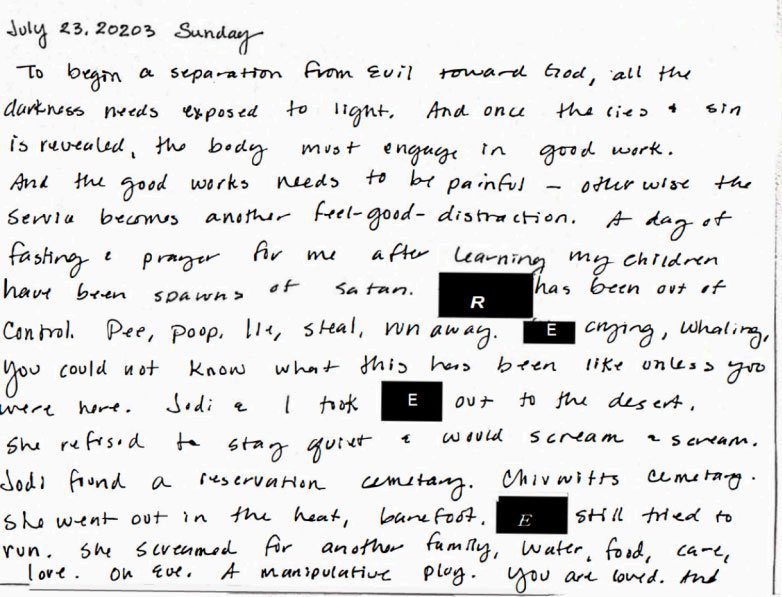 July 23, 20203 Sunday
To begin a separation from Evil toward God, all the
darkness needs exposed to light. And once the lies & sin
is revealed, the body must engage in good work.
And the good works needs to be painful – otherwise the
service becomes another feel-good-distraction. A day of
fasting & prayer for me after learning my children
have been spawns of Satan. R has been out of
control. Pee, poop, lie, steal, run away. E crying, whaling,
You could not know what this has been like unless you
were here. Jodi & I took E out to the desert.
She refused to stay quiet & would scream & scream.
Jodi found a reservation cemetary. Chivwitts cemetary.
She went out in the heat, barefoot. E still tried to
run. She screamed for another family, water, food, care,
love. Oh Eve. A manipulative ploy. You are loved. And